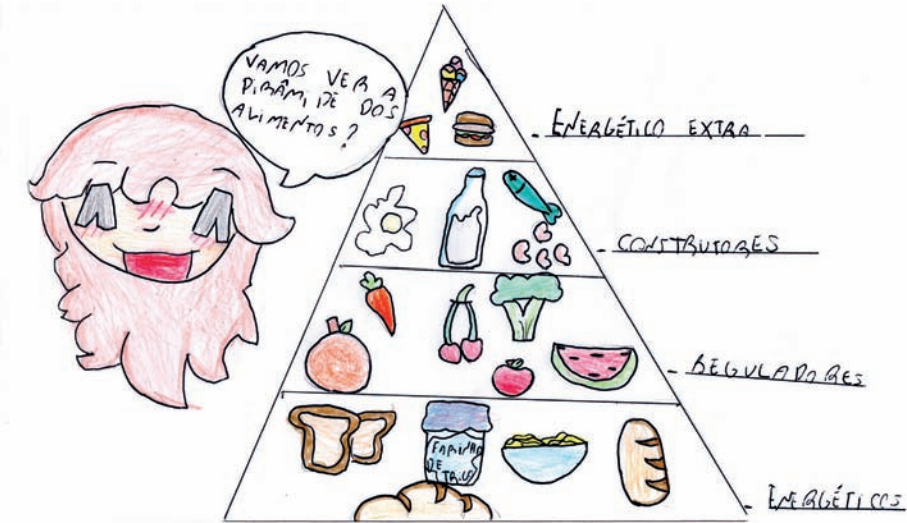 VAMOS VER A
PIRÂMIDE DOS
ALIMENTOS?
ENERGÉTICO EXTRA
CONSTRUTORES
REGULADORES
FARINHA
DE
TRIGO
ENERGÉTICOS